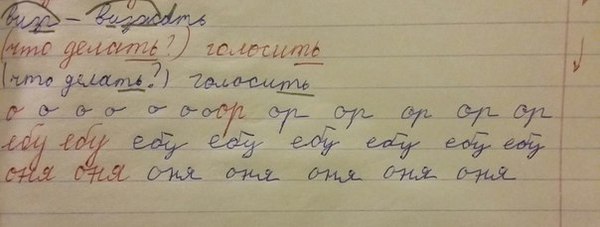 визг - визжать
(что делать?) голосить
(что делать?) голосить
о о о о о о о ор ор ор ор ор ор
ебу ебу ебу ебу ебу ебу ебу ебу
оня оня оня оня оня оня оня